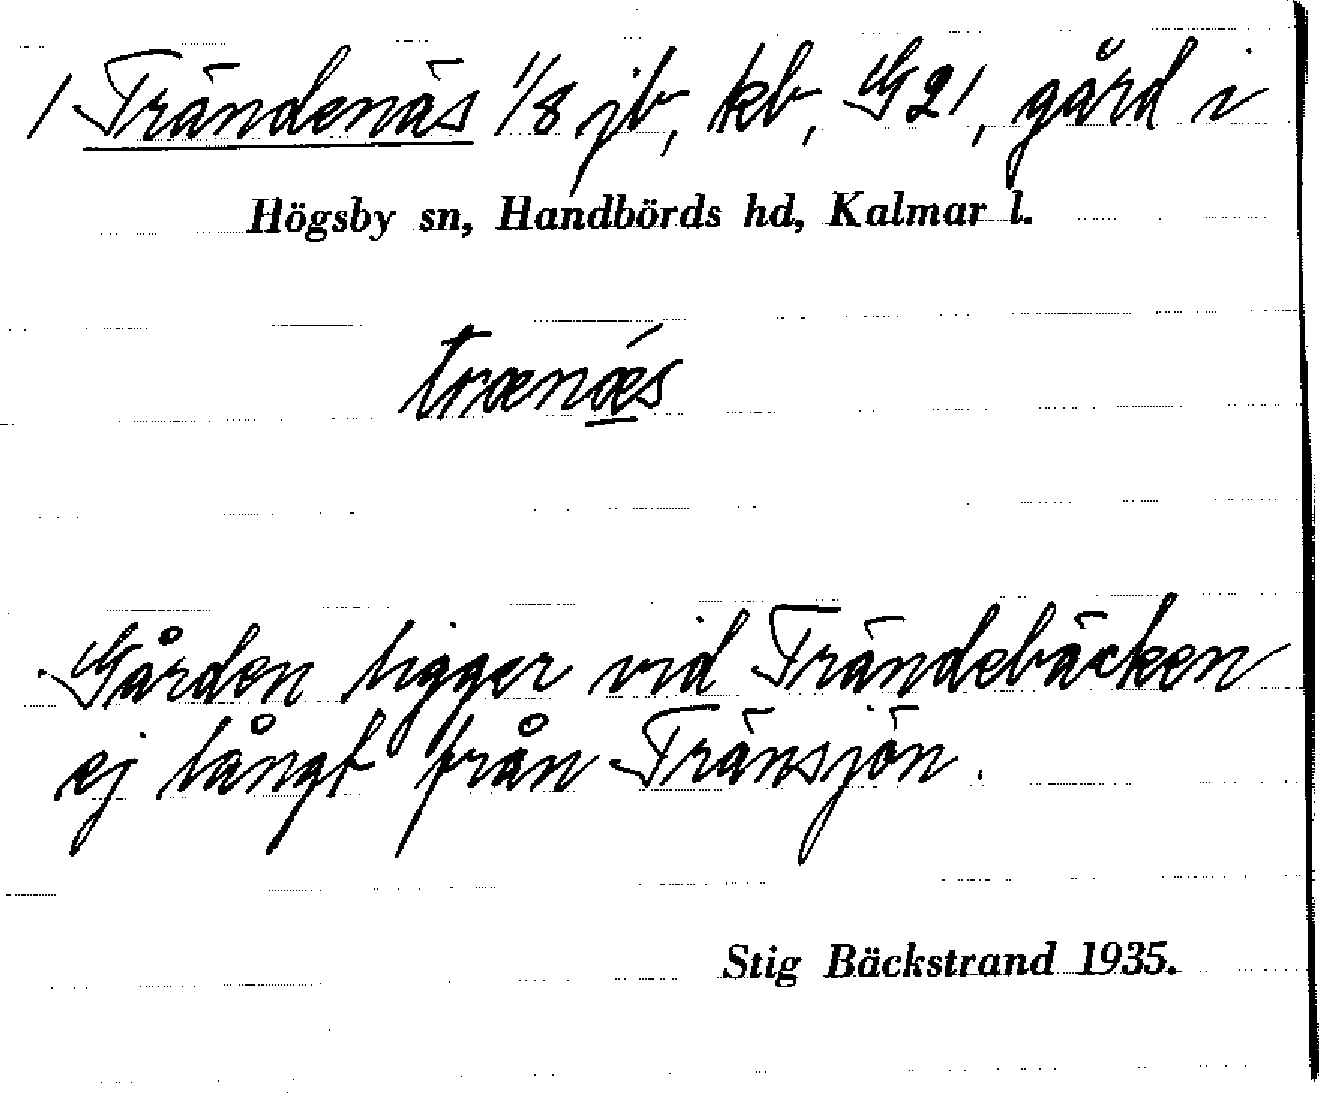 1 Trändenäs 1/8 jb, kb, G21, gård i
Högsby sn, Handbörds hd, Kalmar l.
trænǽs
Gården ligger vid Trändebäcken
ej långt från Tränsjön.
Stig Bäckstrand 1935.